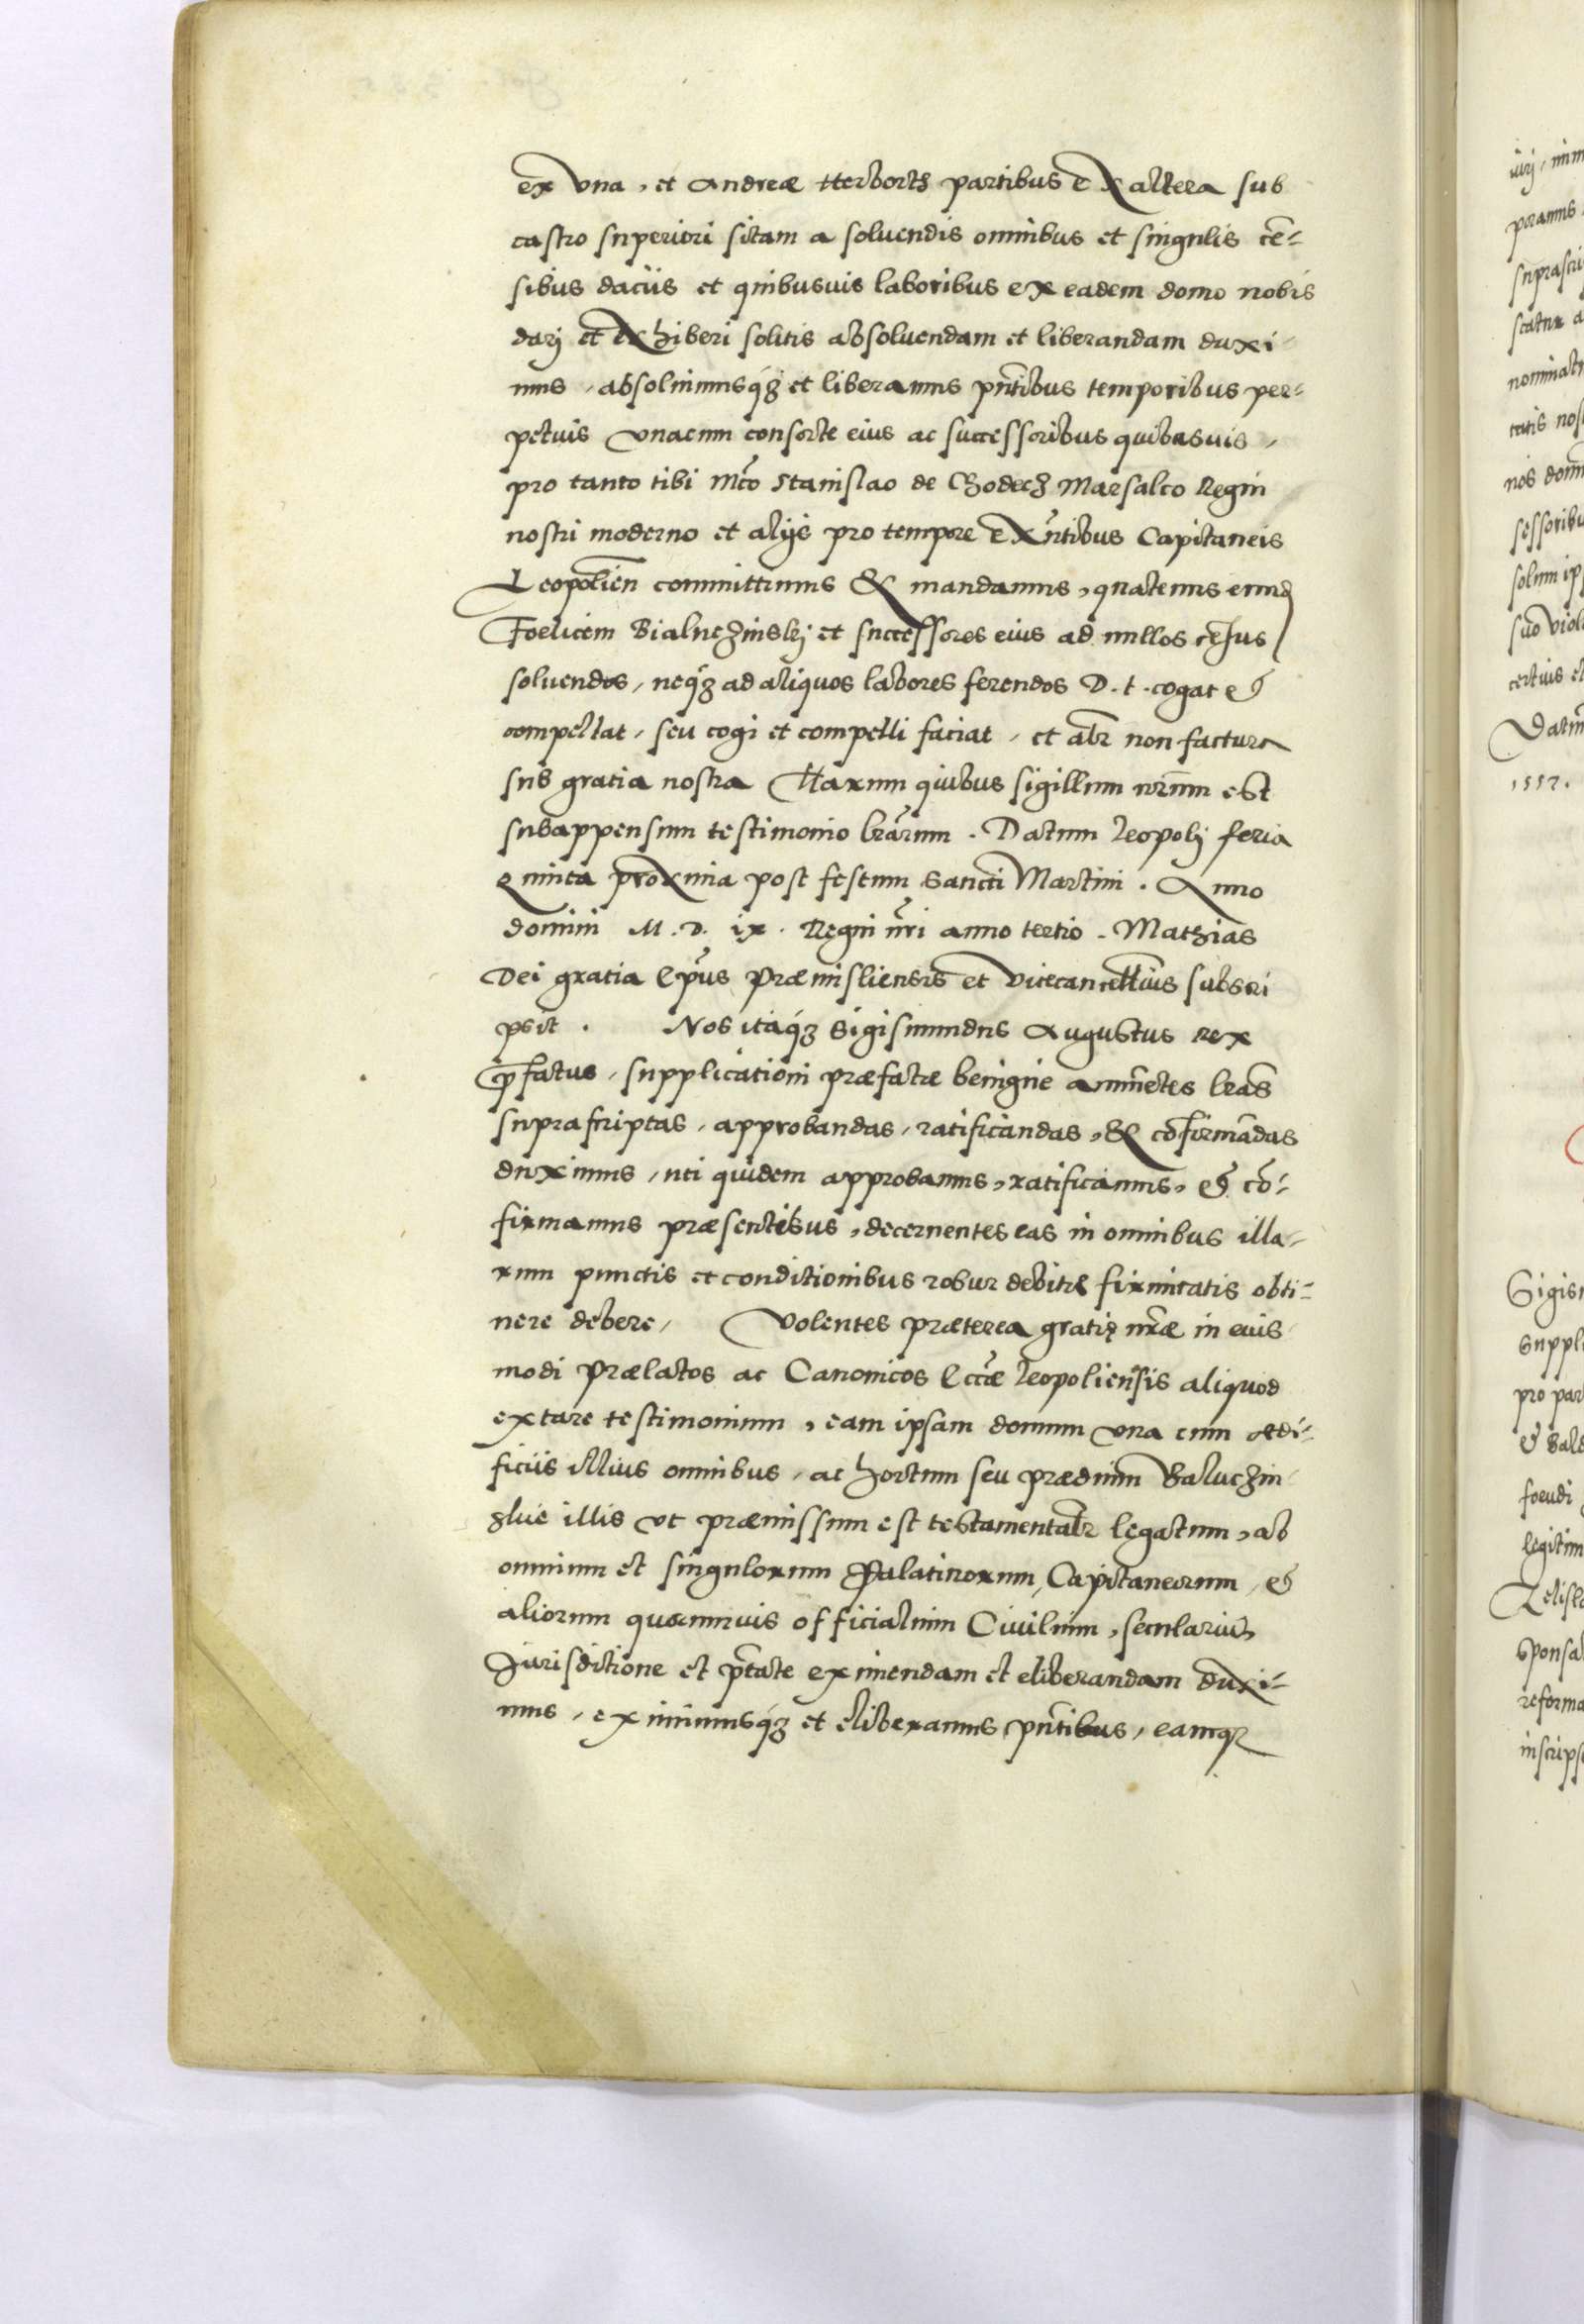 ex vna, et Andreæ Herborth partibus ex altera sub
castro superiori sitam a soluendis omnibus et singulis cē-
sibus daciis et quibusuis laboribus ex eadem domo nobis
darj et exhiberi solitis absoluendam et liberandam duxi
mus, absoluimusq́ꝫ et liberamus pñtibus temporibus per-
petuis vnacum consorte eius ac successoribus quibusuis,
pro tanto tibi Mco Stanislao de Chodecz Marsalco Regni
nostri moderno et alijs pro tempore exñtibus Capitaneis
Leopolien committimus & mandamus, quatenus eund
Foelicem Bialuczinskj et successores eius ad nullos cēsus
soluendos, neq́ꝫ ad aliquos labores ferendos D. t. cogat et
compellat, seu cogi et compelli faciat, et alr non factura
sub gratia nostra Harum quibus sigillum nrum est
subappensum testimonio lrarum. Datum Leopolj feria
quinta proxima post festum Sancti Martini. Anno
domini M. D. ix. Regni nri anno tertio. Mathias
Dei gratia Epus Præmisliensis et Vicecancellius subscri
psit. Nos itaq́ꝫ Sigismundus Augustus Rex
p̄fatus, supplicationi præfatæ benigne annuētes lras
suprascriptas, approbandas, ratificandas, & cōfirmādas
duximus, uti quidem approbamus, ratificamus, et cō-
firmamus præsentibus, decernentes eas in omnibus illa-
rum punctis et conditionibus robur debitæ firmitatis obti-
nere debere, Volentes præterea gratię nræ in eius
modi Prælatos ac Canonicos Eccæ Leopoliensis aliquod
extare testimonium, eam ipsam domum vna cum ædi-
ficiis illius omnibus, ac hortum seu prædium Baluczin
glue illis vt præmissum est testamentalr legatum, ab
omnium et singulorum Palatinorum, Capitaneorum, et
aliorum quorumuis officialium Ciuilium, seculariū,
Jurisditione et ptate eximendam et eliberandam duxi-
mus, eximimusq́ꝫ et eliberamus pñtibus, eamq